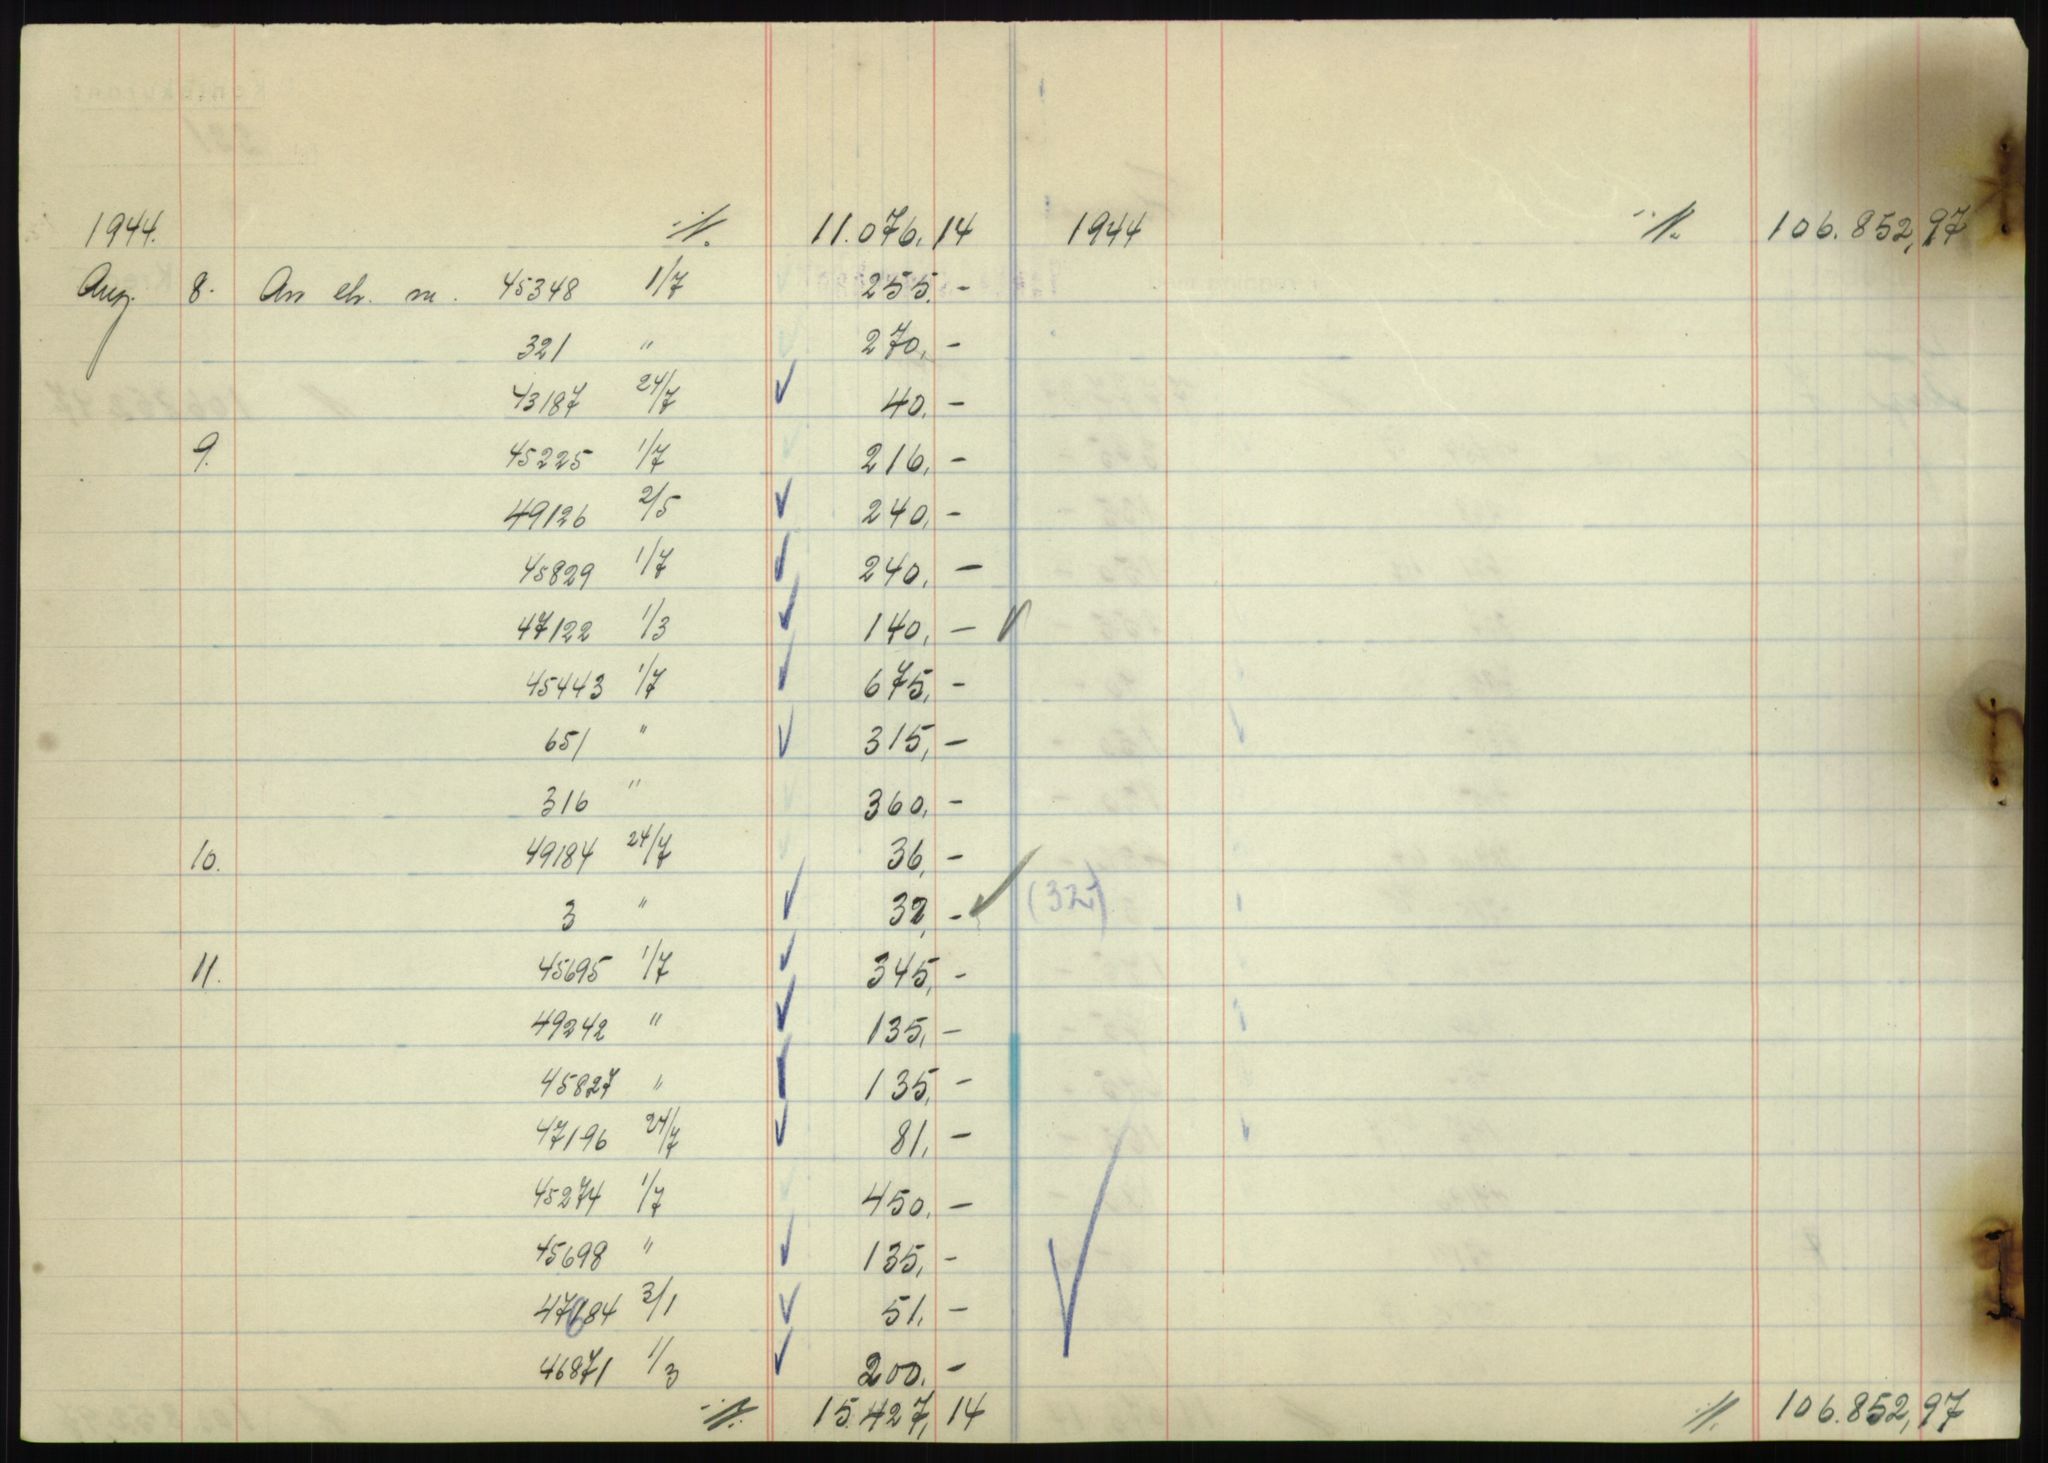 1944. ·/. 11.076,14 1944 ·/. 106.852,97
Aug. 8. An ch. m. 45348 1/7 255,-
321 " 270,-
43187 24/7 40,-
9. 45225 1/7 216,-
49126 2/5 240,-
45829 1/7 240,-
47122 1/3 140,-
45443 1/7 675,-
651 " 315,-
316 " 360,-
10. 49184 24/7 36,-
3 " 32,- (32,-)
11. 45695 1/7 345,-
49242 " 135,-
45827 " 135,-
47196 24/7 81,-
45274 1/7 450,-
45698 " 135,-
47684 3/1 51,-
46871 1/3 200,-
·/. 15.427,14 ·/. 106.852,97